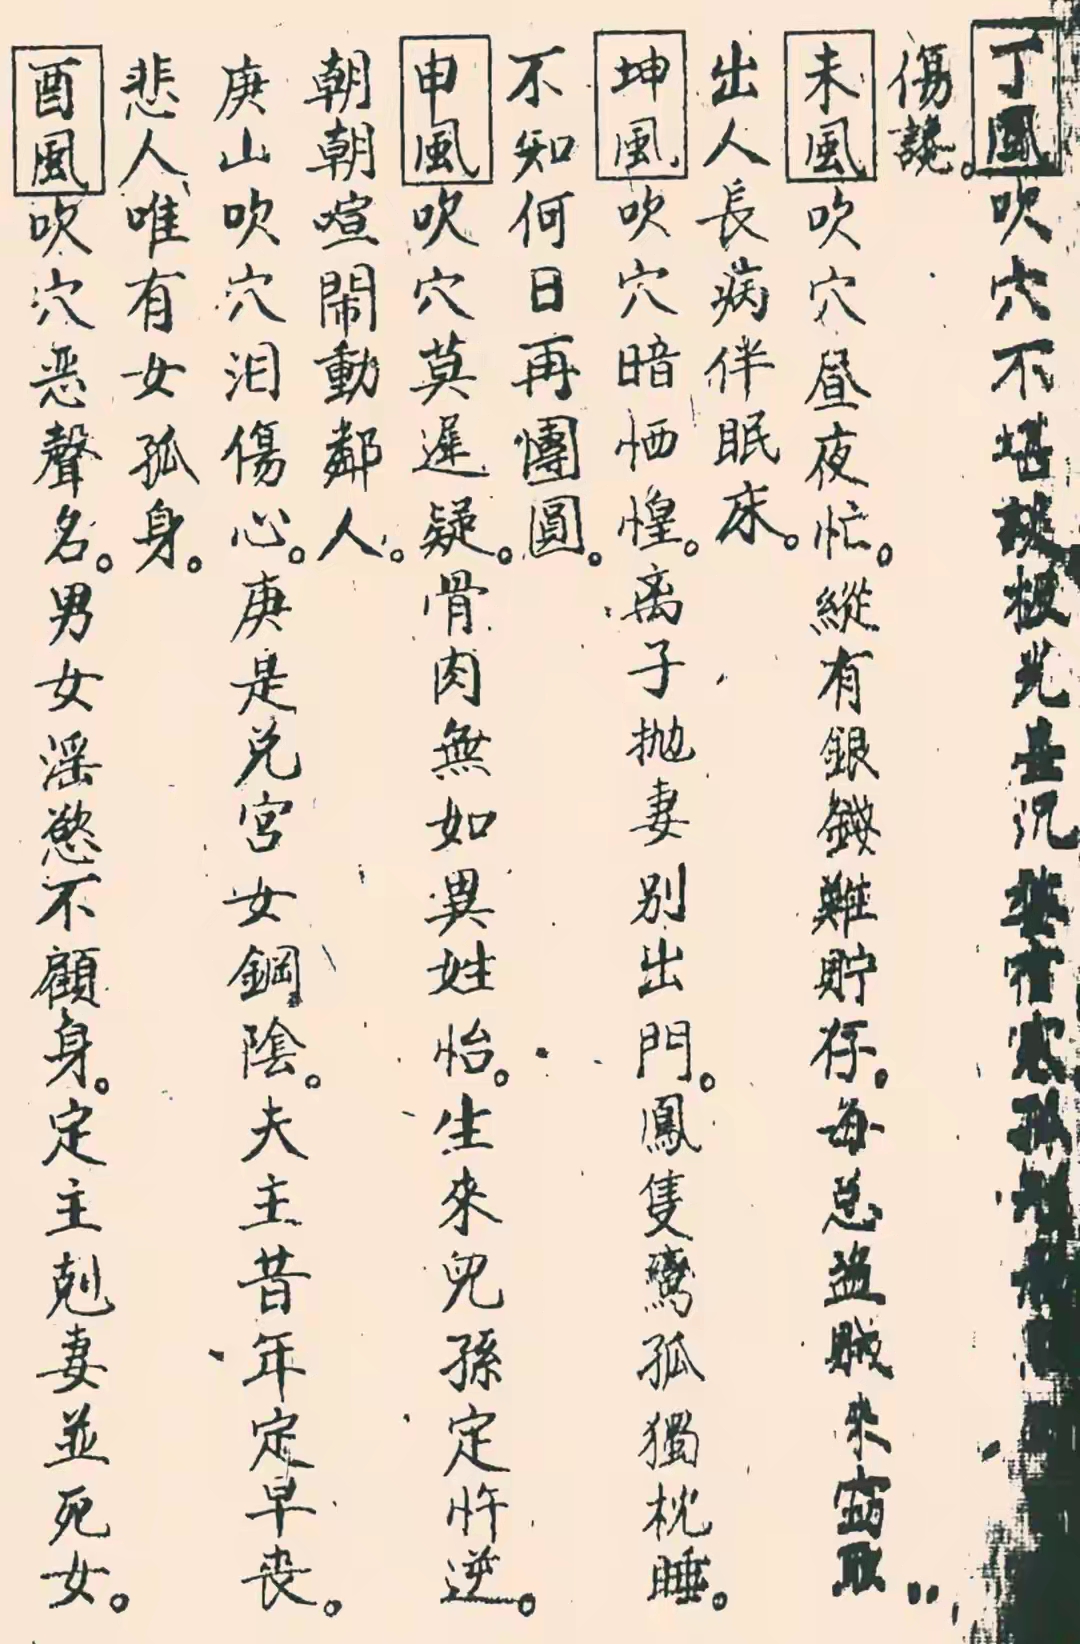 丁風吹穴不堪談
傷讒。
未風吹穴昼夜忙。縱有銀錢難貯存。每忌盜賊來窃取
出人長病伴眠床。
坤風吹穴暗恓惶。离子抛妻別出門。鳳隻鸞孤獨枕睡。
不知何日再團圓。
申風吹穴莫遲疑。骨肉無如異姓怡。生來兒孫定忤逆。
朝朝喧鬧動鄰人。
庚山吹穴泪傷心。庚是兑宮女鋼陰。夫主昔年定早丧。
悲人唯有女孤身。
酉風吹穴恶聲名。男女淫慾不顧身。定主剋妻並死女。